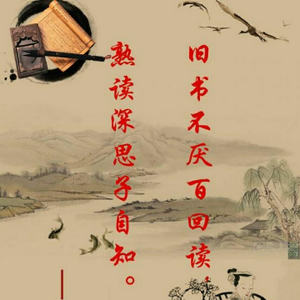 旧书不厌百回读,
熟读深思子自知。